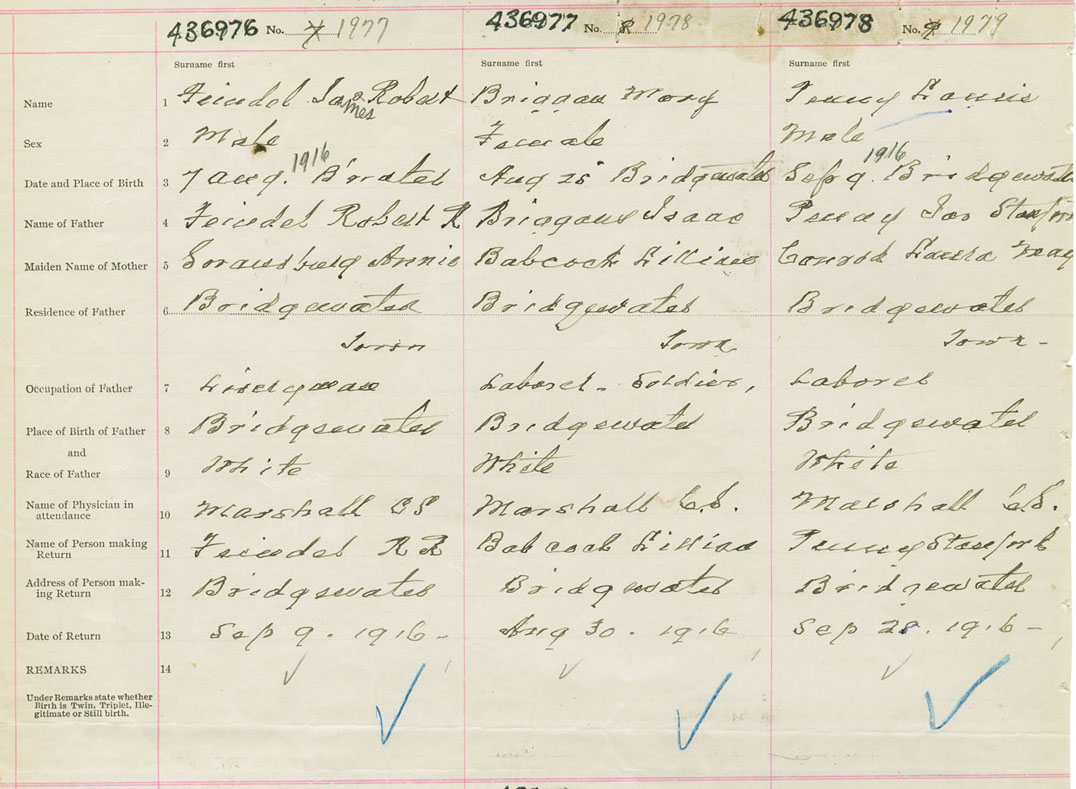 436976 No. 7 1977 436977 No. 8 1978 436978 No. 9 1979
Surname first Surname first Surname first
Name 1 Feindel Jas Robert Mary Penny
mes
Sex 2 Male Female Male
1916 1916
Date and Place of Birth 3 7 Aug. B'water Aug 25 Bridgewater Sep 9. Bridgewater
Name of Father 4 Feindel Robert R Isaac Penny Jas
Maiden Name of Mother 5 Annie Babcock Lillian Conrod Laura May
Residence of Father 6 Bridgewater Bridgewater Bridgewater
Town Town Town -
Occupation of Father 7 Laborer - Soldier, Laborer
Place of Birth of Father 8 Bridgewater Bridgewater Bridgewater
and
Race of Father 9 White White White
Name of Physician in
attendance 10 Marshall C S Marshall C.S. Marshall C.S.
Name of Person making
Return 11 Feindel R R Babcock Lillian Penny
Address of Person mak-
ing Return 12 Bridgewater Bridgewater Bridgewater
Date of Return 13 Sep 9. 1916 - Aug 30. 1916 Sep 28. 1916 -
REMARKS 14
Under Remarks state whether
Birth is Twin, Triplet, Ille-
gitimate or Still birth.